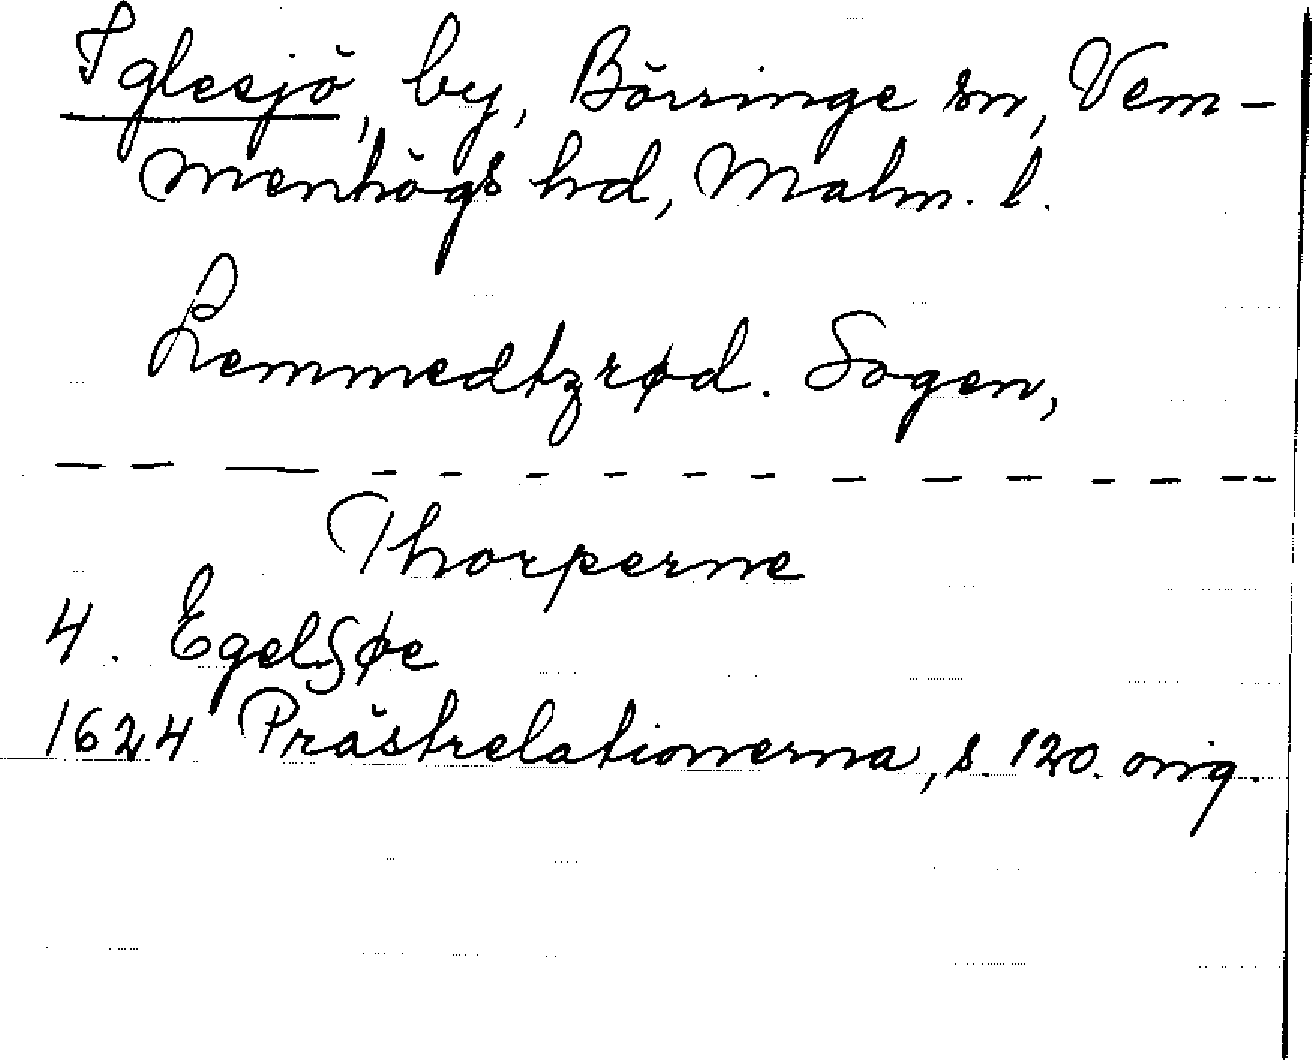 Iglesjö, by, Börringe sn, Vem-
menhögs hd, Malm. l.
Lemmedtzrød. Sogen,
Thorperne
4. Egelsøe
1624 Prästrelationerna, s. 120. orig.